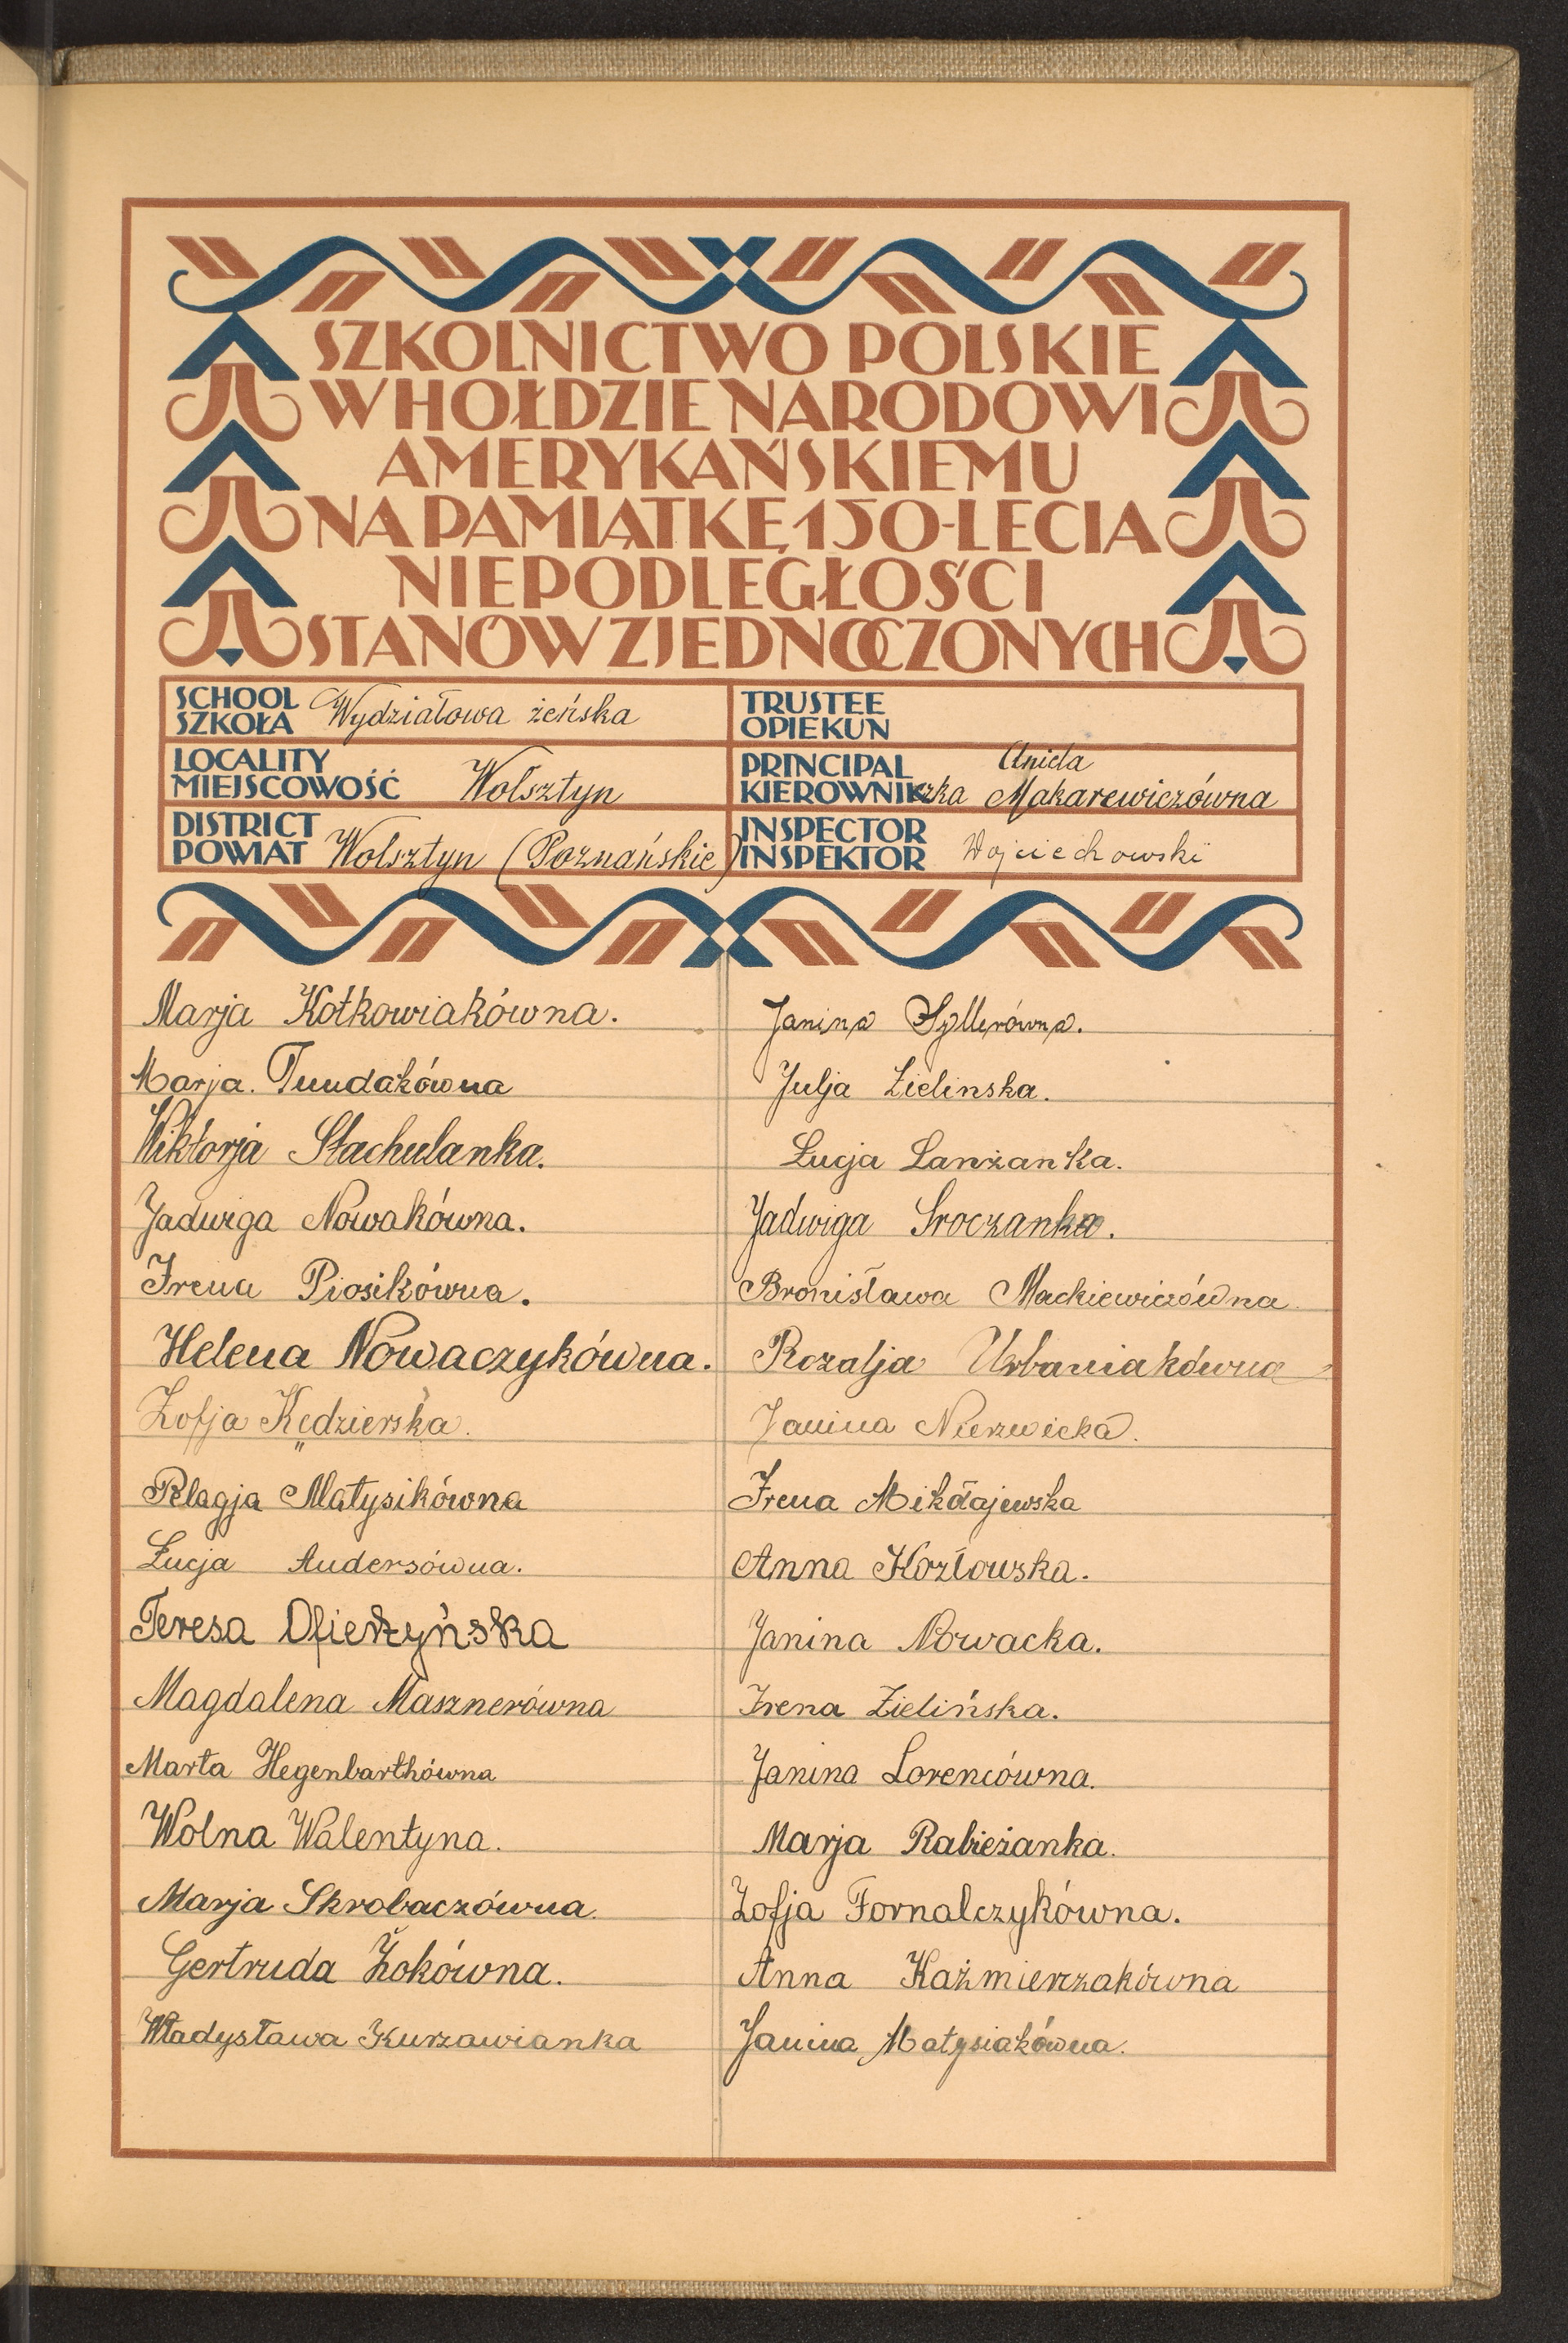 SZKOLNICTWO POLSKIE
W HOŁDZIE NARODOWI
AMERYKAŃSKIEMU
NA PAMIĄTKĘ 150-LECIA
NIEPODLEGŁOŚCI
STANÓW ZJEDNOCZONYCH
SCHOOL
SZKOŁA Wydziałowa żeńska
TRUSTEE
OPIEKUN
LOCALITY
MIEJSCOWOŚĆ Wolsztyn
PRINCIPAL Aniela
KIEROWNIczka Makarewiczówna
DISTRICT
POWIAT Wolsztyn (Poznańskie)
INSPECTOR
INSPEKTOR Wojciechowski
Marja Kotkowiakówna.
Marja. Tundakówna
Wiktorja Stachulanka.
Jadwiga Nowakówna.
Irena Piosikówna.
Helena Nowaczykówna.
Zofja Kędzierska.
Pelagja Matysikówna
Łucja Andersówna.
Teresa Ofierzyńska
Magdalena Masznerówna
Marta Hegenbarthówna
Wolna Walentyna.
Marja Skrobaczówna.
Gertruda Żokówna.
Władysława Kurzawianka
Janina Syllerówna.
Julja Zielinska.
Łucja Lanżanka.
Jadwiga Sroczanka.
Bronisława Mackiewiczówna.
Rozalja Urbaniakówna
Janina Nierzwicka.
Irena Mikołajewska
Anna Kozłowska.
Janina Nowacka.
Irena Zielińska.
Janina Lorencówna.
Marja Rabieżanka.
Zofja Fornalczykówna.
Anna Kaźmierzakówna
Janina Matysiakówna.